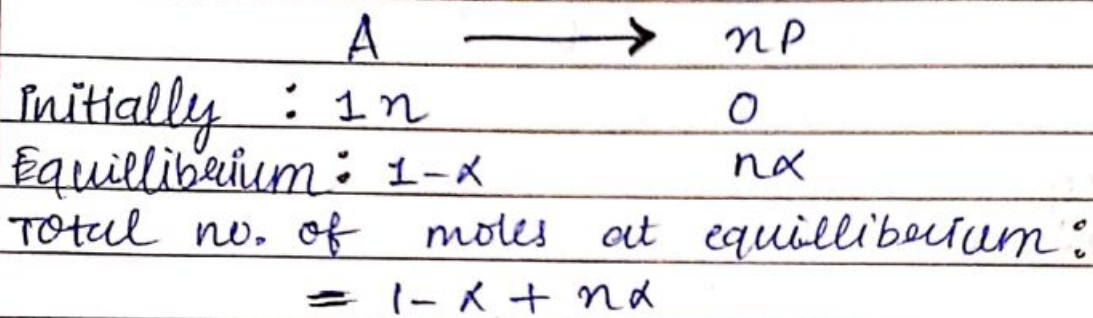 A ⟶ nP
Initially : 1n 0
Equilliberium : 1-α nα
Total no. of moles at equilliberium :
= 1-α + nα